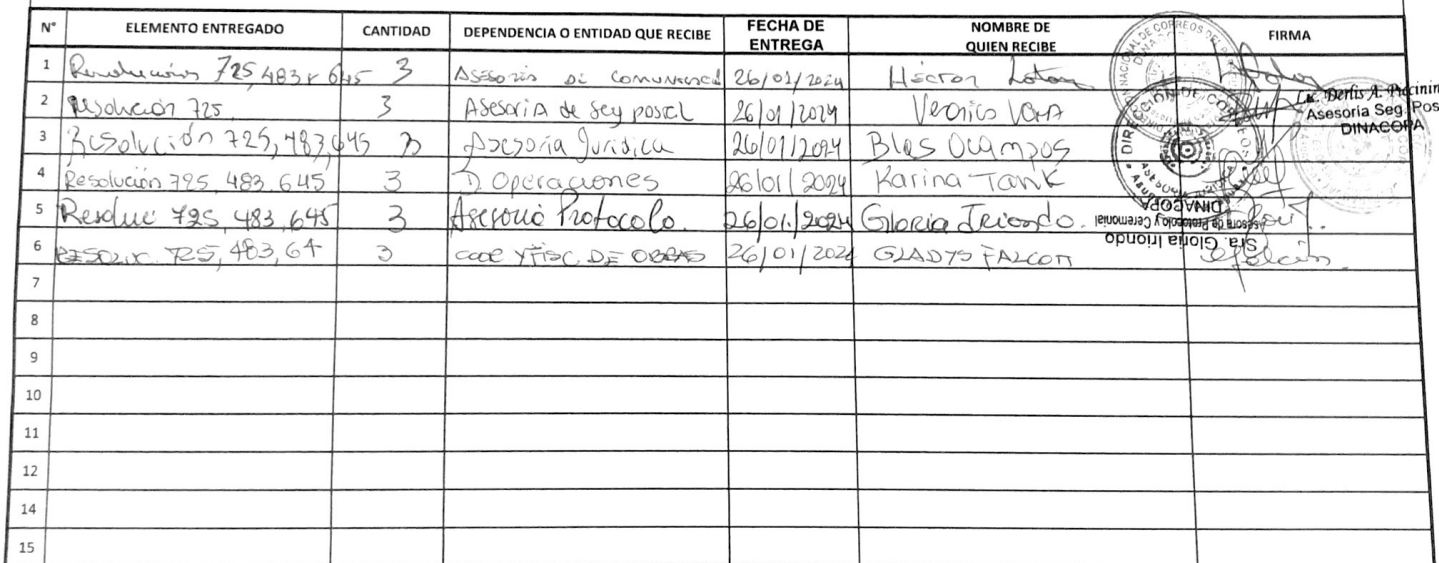 N° ELEMENTO ENTREGADO CANTIDAD DEPENDENCIA O ENTIDAD QUE RECIBE FECHA DE ENTREGA NOMBRE DE QUIEN RECIBE FIRMA
1 725, 483 y 645 3 Asesoría de 26/01/2024 Héctor
2 Resolución 725 3 Asesoria de Seg postal 26/01/2024 Veronica
3 Resolución 725, 483, 645 3 Asesoría Juridica 26/01/2024 Blas Ocampos
4 Resolución 725, 483, 645 3 D. Operaciones 26/01/2024 Karina Tank
5 Resoluc 725, 483, 645 3 Asesoria Protocolo. 26/01/2024 Gloria Iriondo.
6 RESOLUC. 725, 483, 64 3 26/01/2024 GLADYS FALCON
7
8
9
10
11
12
14
15
Lic. Derlis A. Piccinin
Asesoria Seg. Pos
DINACOPA
DIRECCION DE CORREOS
Sra. Gloria Iriondo
Asesora de Protocolo y Ceremonial
DINACOPA